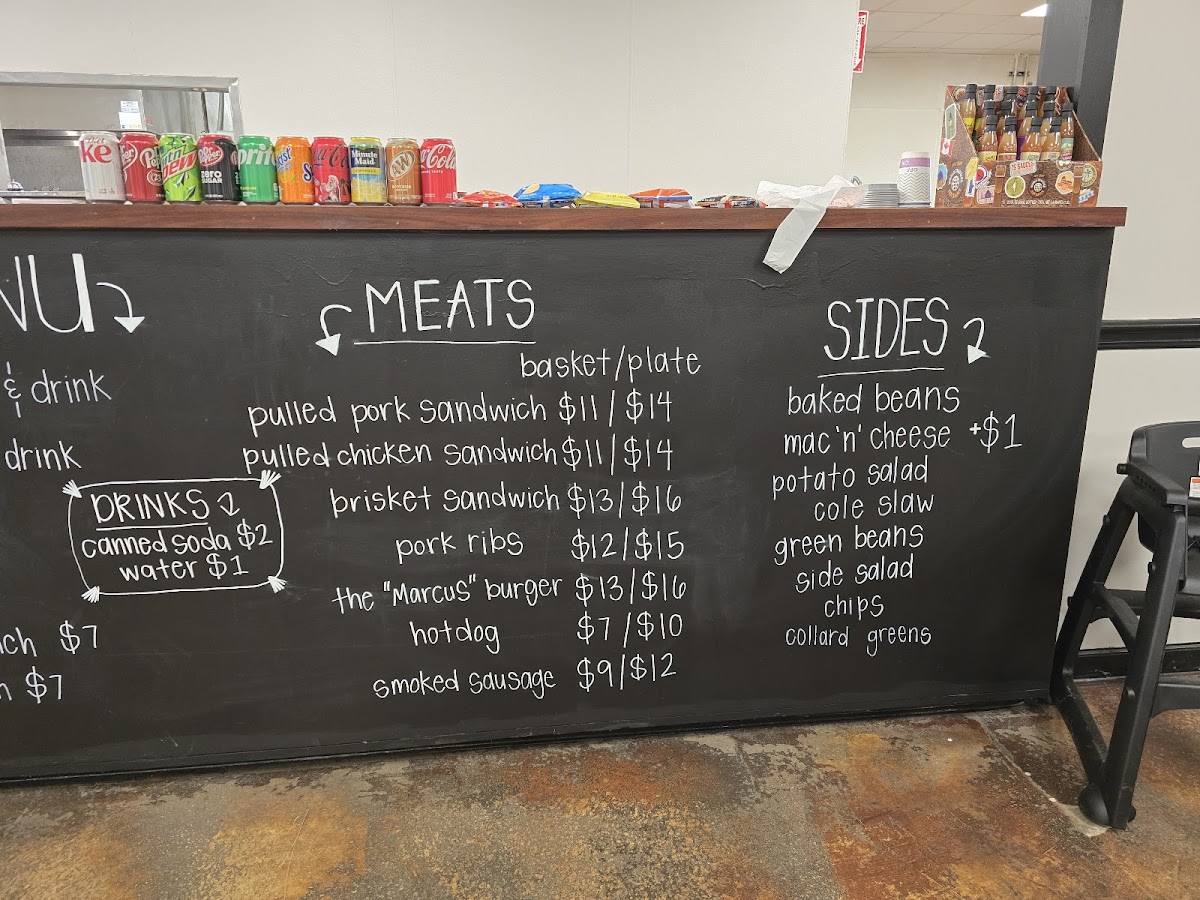 NU
& drink
drink
DRINKS
canned soda $2
water $1
$7
$7
MEATS
basket/plate
pulled pork sandwich $11/$14
pulled chicken sandwich $11/$14
brisket sandwich $13/$16
pork ribs $12/$15
the "Marcus" burger $13/$16
hotdog $7/$10
smoked sausage $9/$12
SIDES
baked beans
mac 'n' cheese +$1
potato salad
cole slaw
green beans
side salad
chips
collard greens
ke
Dr Pepper
ZERO
Minute Maid
A&W
Coca-Cola